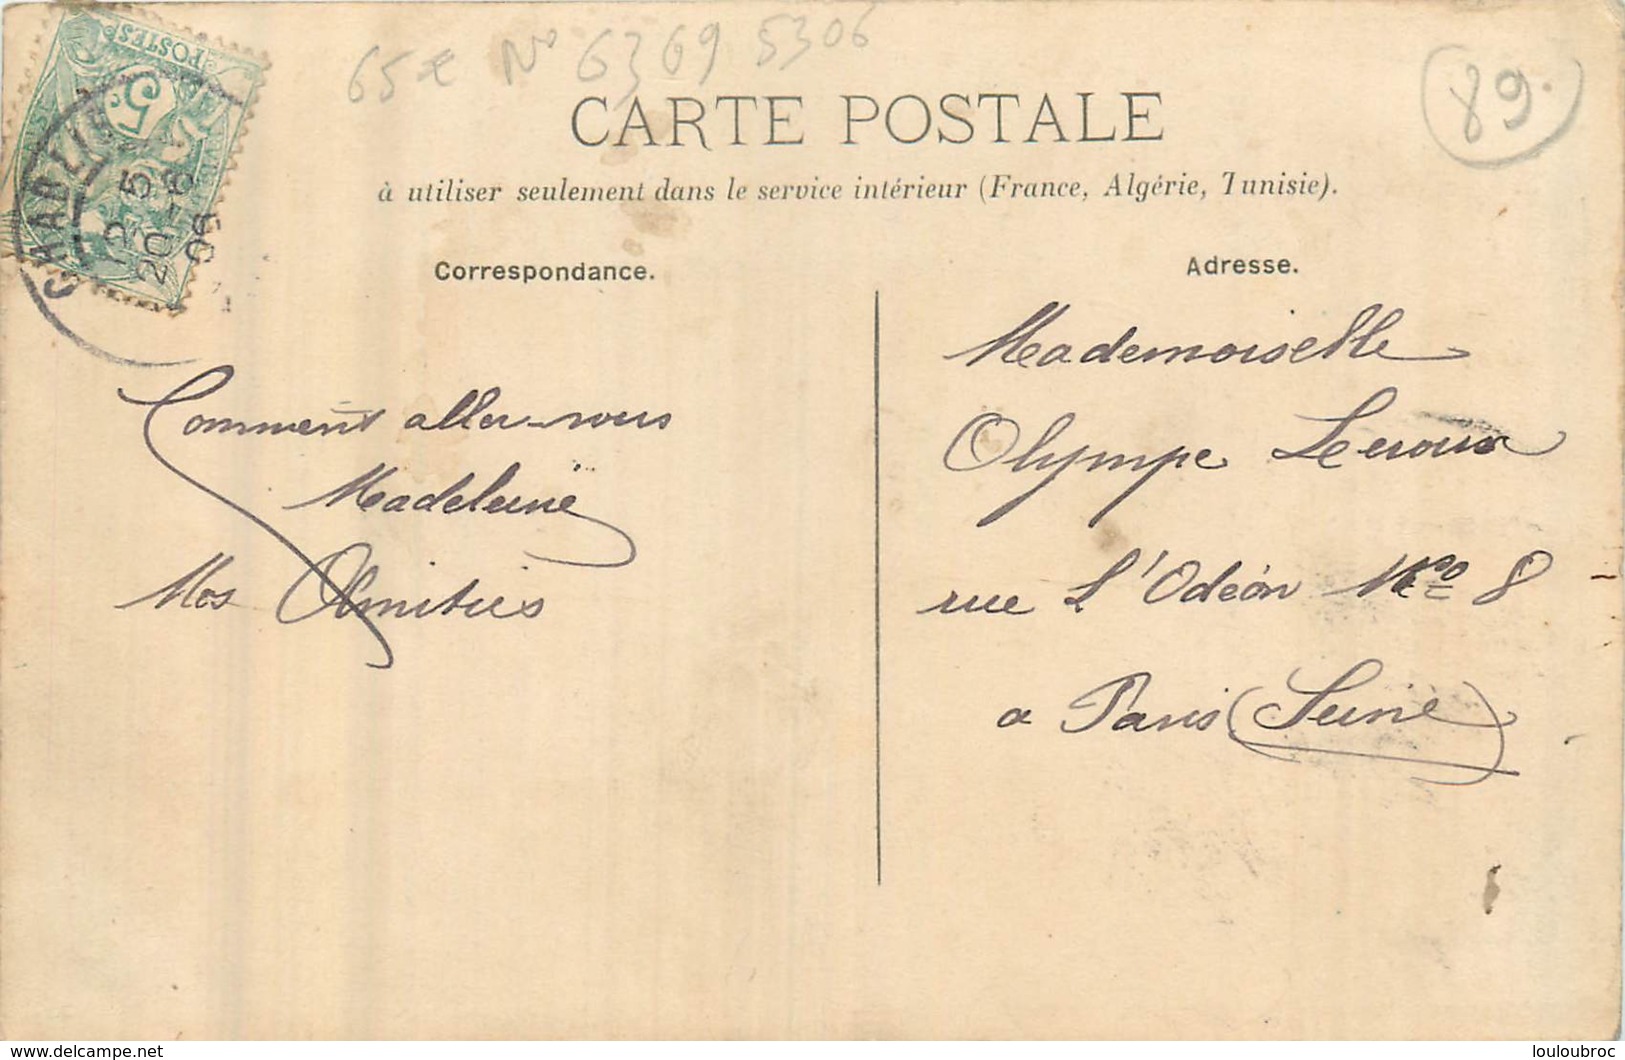 65€ No 6369 5306
89.
CARTE POSTALE
à utiliser seulement dans le service intérieur (France, Algérie, Tunisie).
POSTES
5c
Correspondance.
Comment aller-vous
Madeleine
Mes Amitiés
Adresse.
Mademoiselle
Olympe Leroux
rue L'Odéon No 8
a Paris (Seine)
delcampe.net
louloubroc